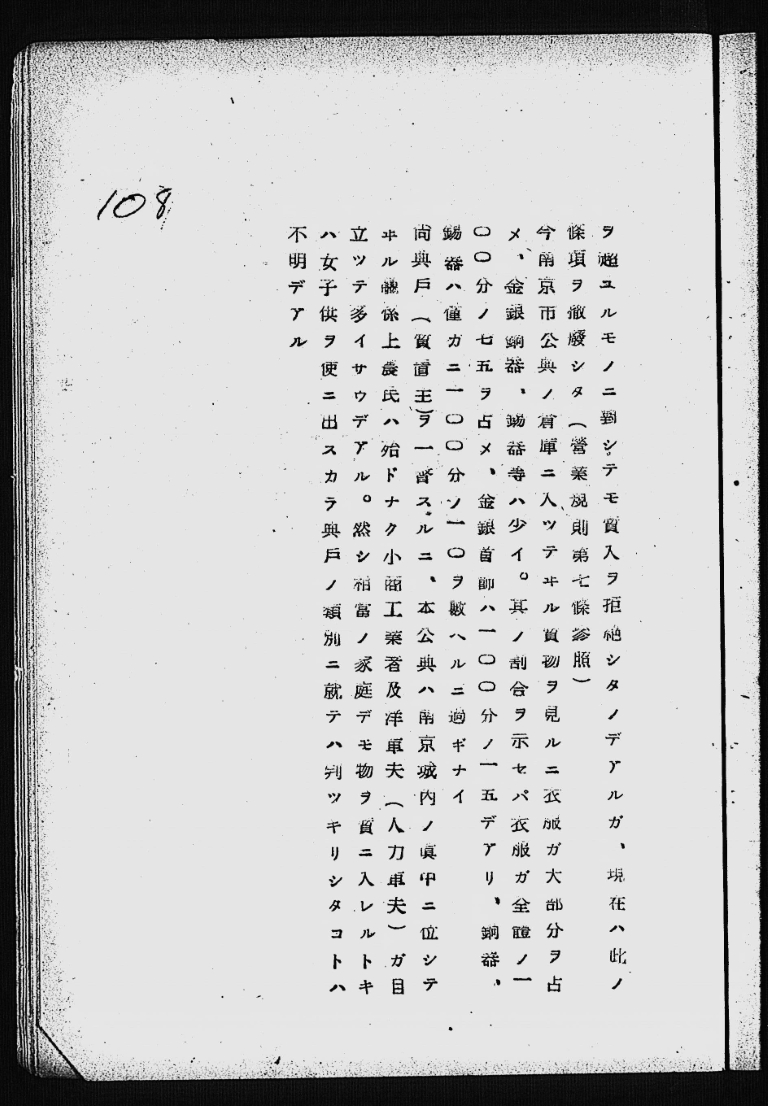 108
ヲ超ユルモノニ到シテモ質入ヲ拒絶シタノデアルガ、現在ハ此ノ
條項ヲ撤廢シタ（營業規則第七條參照）
今南京市公典ノ倉庫ニ入ツテヰル質物ヲ見ルニ衣服ガ大部分ヲ占
メ、金銀銅器、錫器等ハ少イ。其ノ割合ヲ示セバ衣服ガ全體ノ一
〇〇分ノ七五ヲ占メ、金銀首飾ハ一〇〇分ノ一五デアリ、銅器、
錫器ハ僅カニ一〇〇分ノ一〇ヲ數ヘルニ過ギナイ
尚典戶（質置主）ヲ一瞥スルニ、本公典ハ南京城内ノ眞中ニ位シテ
ヰル關係上農民ハ殆ドナク小商工業者及洋車夫（人力車夫）ガ目
立ツテ多イサウデアル。然シ相當ノ家庭デモ物ヲ質ニ入レルトキ
ハ女子供ヲ使ニ出スカラ典戶ノ類別ニ就テハ判ツキリシタコトハ
不明デアル